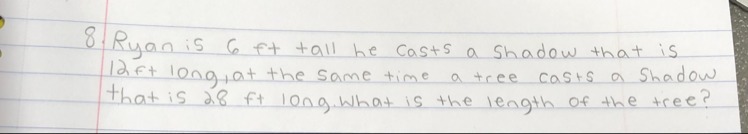 8. Ryan is 6 ft tall he casts a shadow that is
12ft long, at the same time a tree casts a shadow
that is 28 ft long. What is the length of the tree?